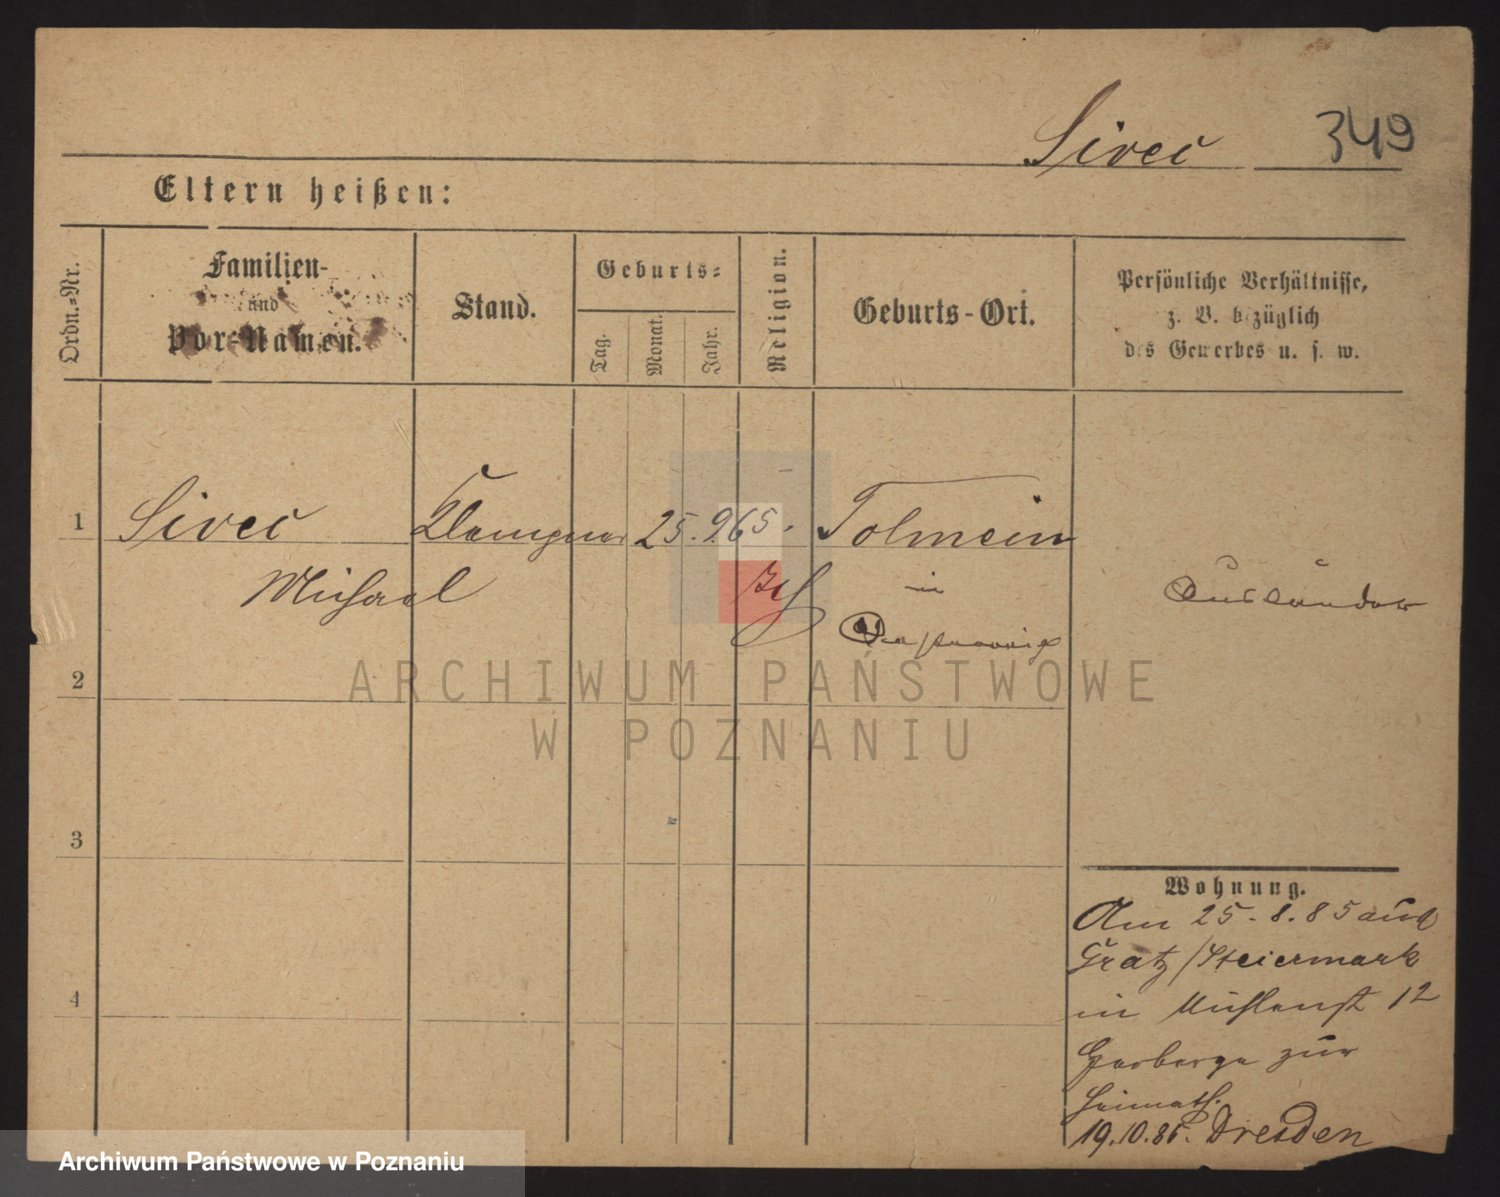 Sivec 349
Eltern heißen:
Ordn.=Nr.
Familien-
und
Vor=Namen.
Stand.
Geburts=
Tag.
Monat.
Jahr.
Religion.
Geburts-Ort.
Persönliche Verhältnisse,
z. B. bezüglich
des Gewerbes u. s. w.
1 Sivec Klempner 25. 9. 65. Tolmein
Michael kth in
Ausländer
2
3
4
Wohnung.
Am 25.8.85 aus
Gratz/Steiermark
in Mühlenst 12
Herberge zur
Heimath.
19.10.85. Dresden
ARCHIWUM PAŃSTWOWE
W POZNANIU
Archiwum Państwowe w Poznaniu